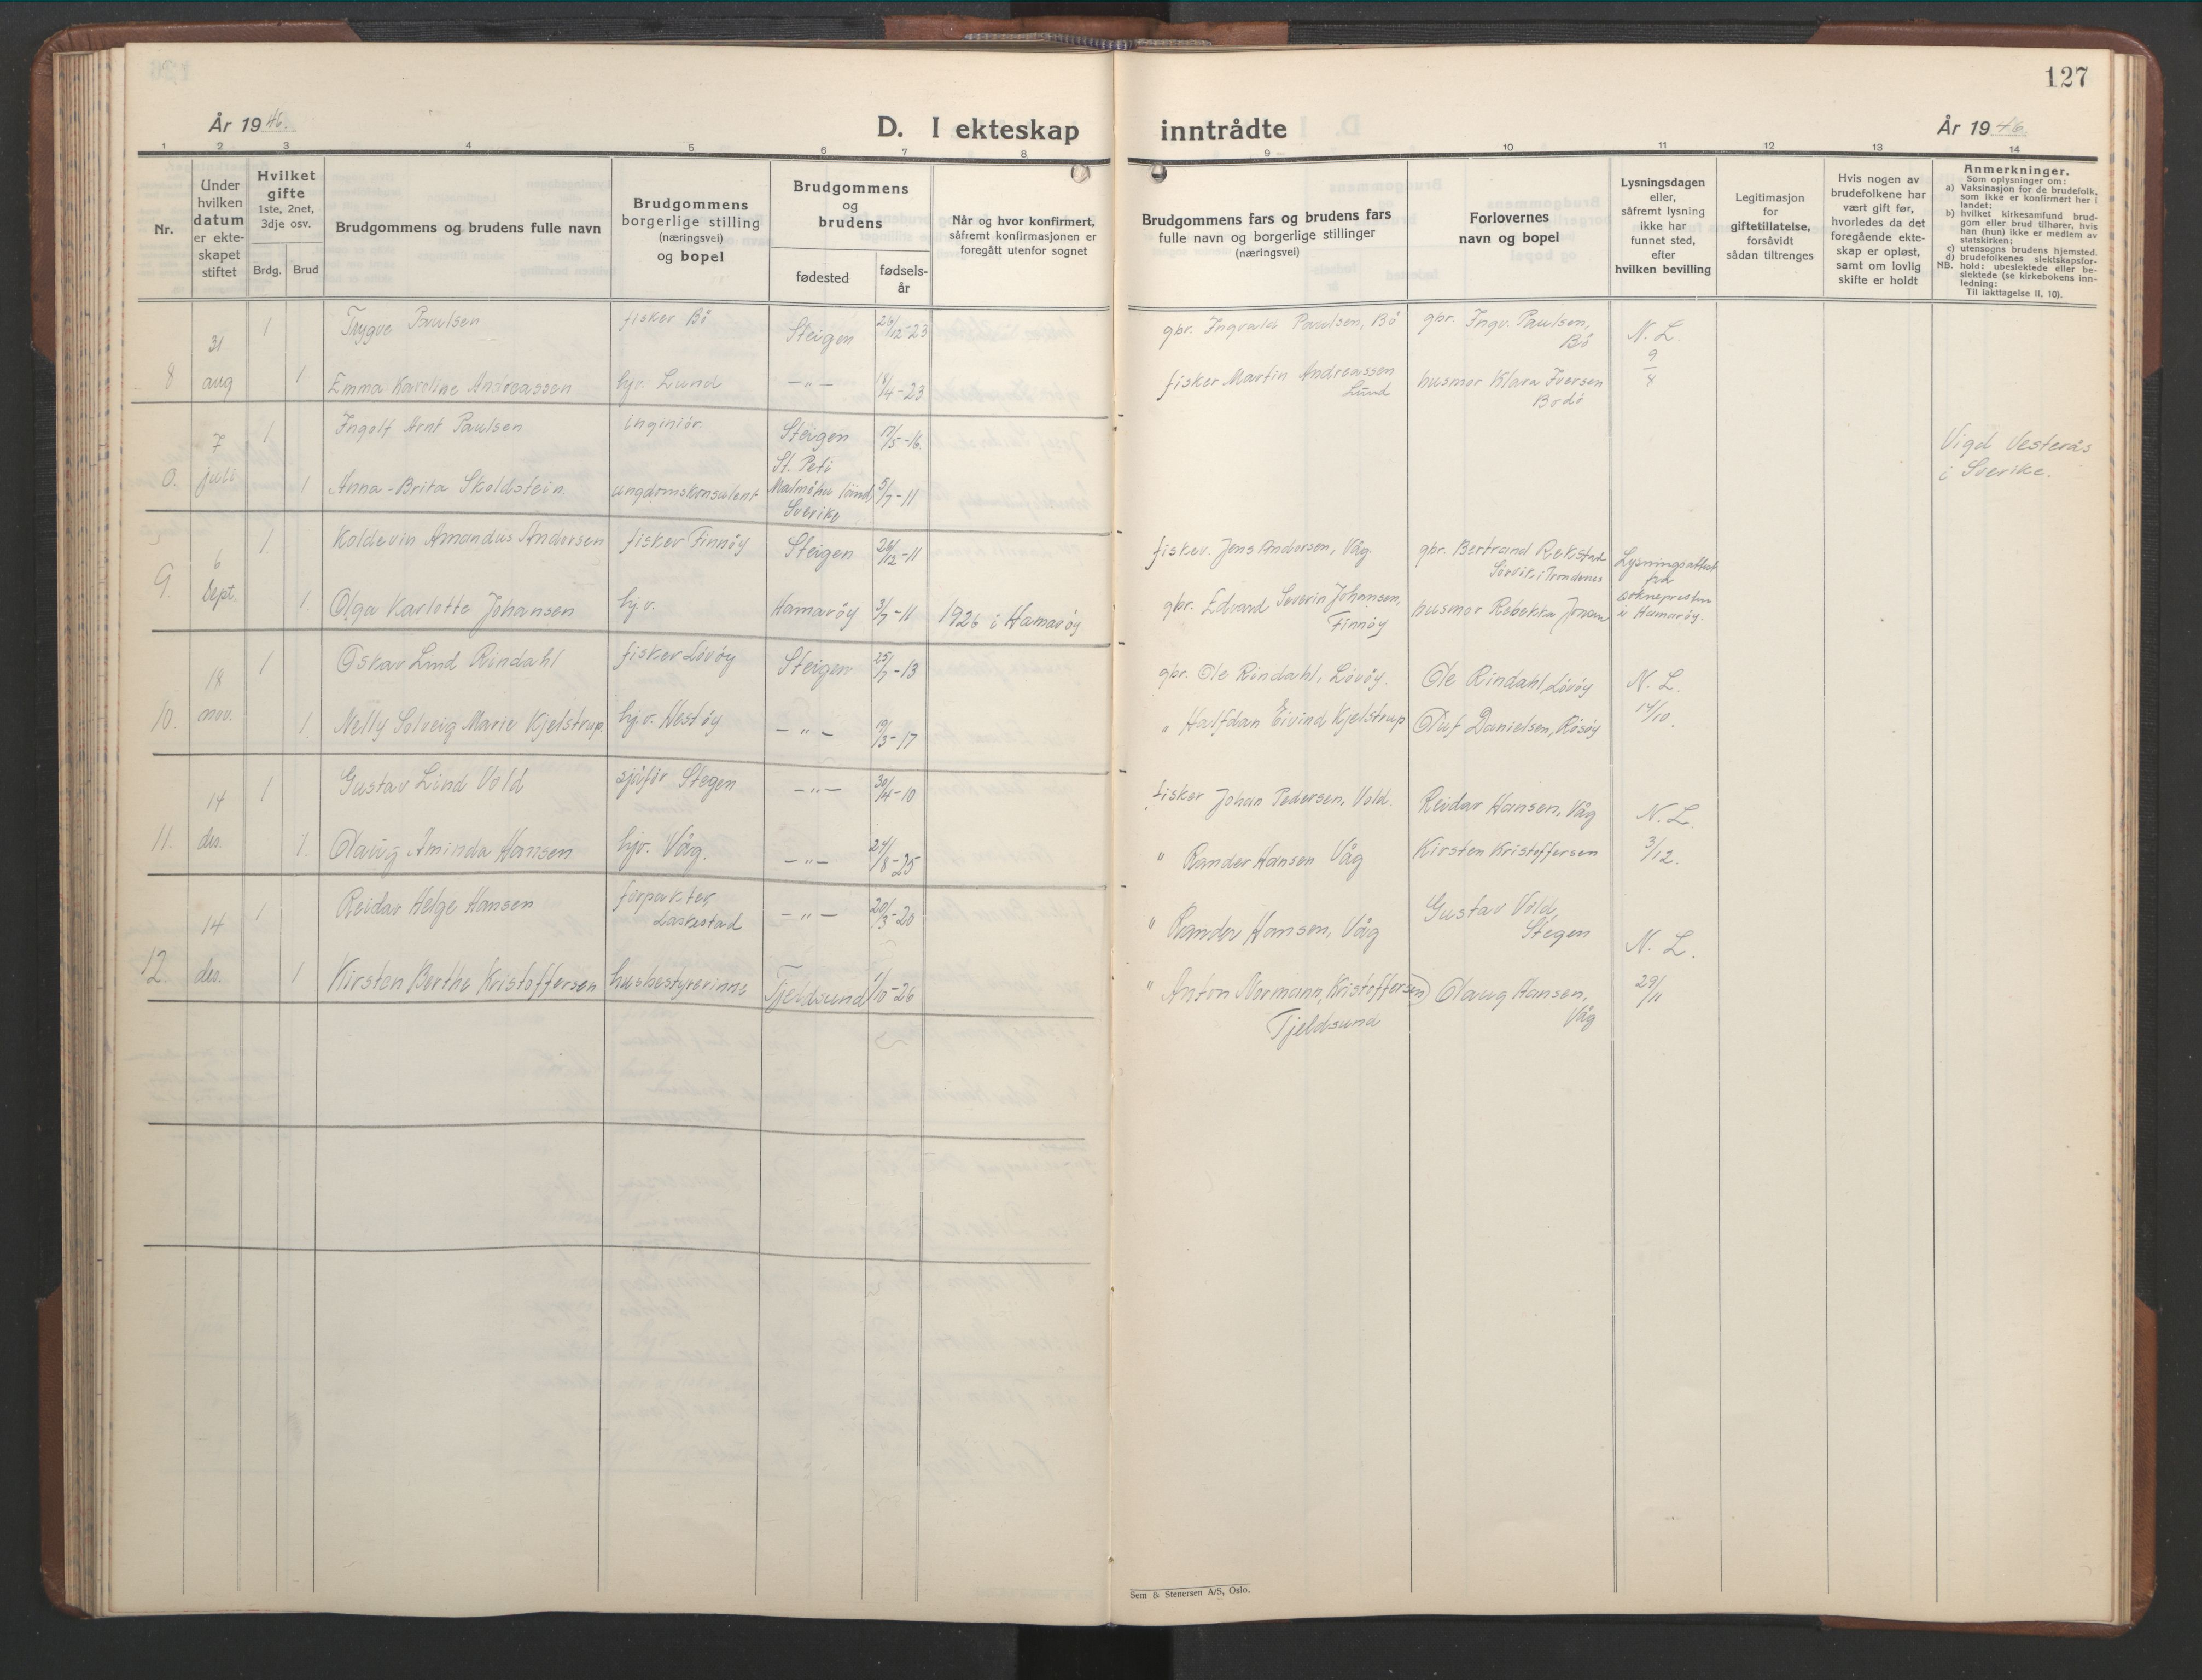 127
År 1946.
D. I ekteskap inntrådte
År 1946.
1 2 3 4 5 6 7 8 9 10 11 12 13 14
Nr.
Under hvilken datum er ekteskapet stiftet
Hvilket gifte 1ste, 2net, 3dje osv.
Brdg. Brud
Brudgommens og brudens fulle navn
Brudgommens borgerlige stilling (næringsvei) og bopel
Brudgommens og brudens
fødested
fødselsår
Når og hvor konfirmert, såfremt konfirmasjonen er foregått utenfor sognet
Brudgommens fars og brudens fars fulle navn og borgerlige stillinger (næringsvei)
Forlovernes navn og bopel
Lysningsdagen eller, såfremt lysning ikke har funnet sted, efter hvilken bevilling
Legitimasjon for giftetillatelse, forsåvidt sådan tiltrenges
Hvis nogen av brudefolkene har vært gift før, hvorledes da det foregående ekteskap er opløst, samt om lovlig skifte er holdt
Anmerkninger.
Som oplysninger om:
a) Vaksinasjon for de brudefolk, som ikke er konfirmert her i landet;
b) hvilket kirkesamfund brudgom eller brud tilhører, hvis han (hun) ikke er medlem av statskirken;
c) utensogns brudens hjemsted.
d) brudefolkenes slektskapsforhold: ubeslektede eller beslektede (se kirkebokens innledning:
NB.
Til iakttagelse II, 10).
8 31 aug 1 Trygve Paulsen fisker Bö Steigen 26/12-23 gbr. Ingvald Paulsen, Bö gbr. Ingv. Paulsen, Bö N. L. 9/8
1 Emma Karoline Andreassen hjv. Lund -"- 18/4-23 fisker Martin Andreassen Lund husmor Klara Iversen Bodö
0. 7 juli 1 Ingolf Arnt Paulsen inginiör Steigen 17/5-16. Vigd Vesterås i Sverike.
1 Anna-Brita Skoldstein ungdomskonsulent St. Peti Malmöhu länd Sverike 5/7-11
9. 6 Sept. 1. Koldevin Amandus Andersen fisker Finnöy Steigen 26/12-11 fisker. Jens Andersen, Våg. gbr. Bertrand Rekstad Sörvik i Trondenes Lysningsattest fra soknepresten i Hamaröy.
1. Olga Karlotte Johansen hj.v. Hamaröy 3/7-11 1926 i Hamaröy gbr. Edvard Severin Johansen, Finnöy husmor Rebekka
10. 18 nov. 1 Oskar Lind Rindahl fisker Lövöy Steigen 25/7-13 gbr. Ole Rindahl, Lövöy. Ole Rindahl, Lövöy N. L. 14/10.
1. Nelly Solveig Marie Kjelstrup. hj.v. Hestöy -"- 19/3-17 " Halfdan Eivind Kjelstrup Oluf Danielsen, Rösöy
11. 14 des. 1 Gustav Lind Vold sjåför Stegen -"- 30/4-10 fisker Johan Pedersen, Vold. Reidar Hansen, Våg N. L. 3/12.
1. Olaug Aminda Hansen hjv. Våg. -"- 24/8-25 " Rander Hansen Våg Kirsten Kristoffersen
12. 14 des. 1 Reidar Helge Hansen forpakter, Laskestad -"- 20/3-20 " Rander Hansen, Våg Gustav Vold, Stegen N. L. 29/11
1 Kirsten Berthe Kristoffersen husbestyrerinne Tjeldsund 1/10-26 " Anton Normann, Kristoffersen Tjeldsund Olaug Hansen, Våg
Sem & Stenersen A/S, Oslo.